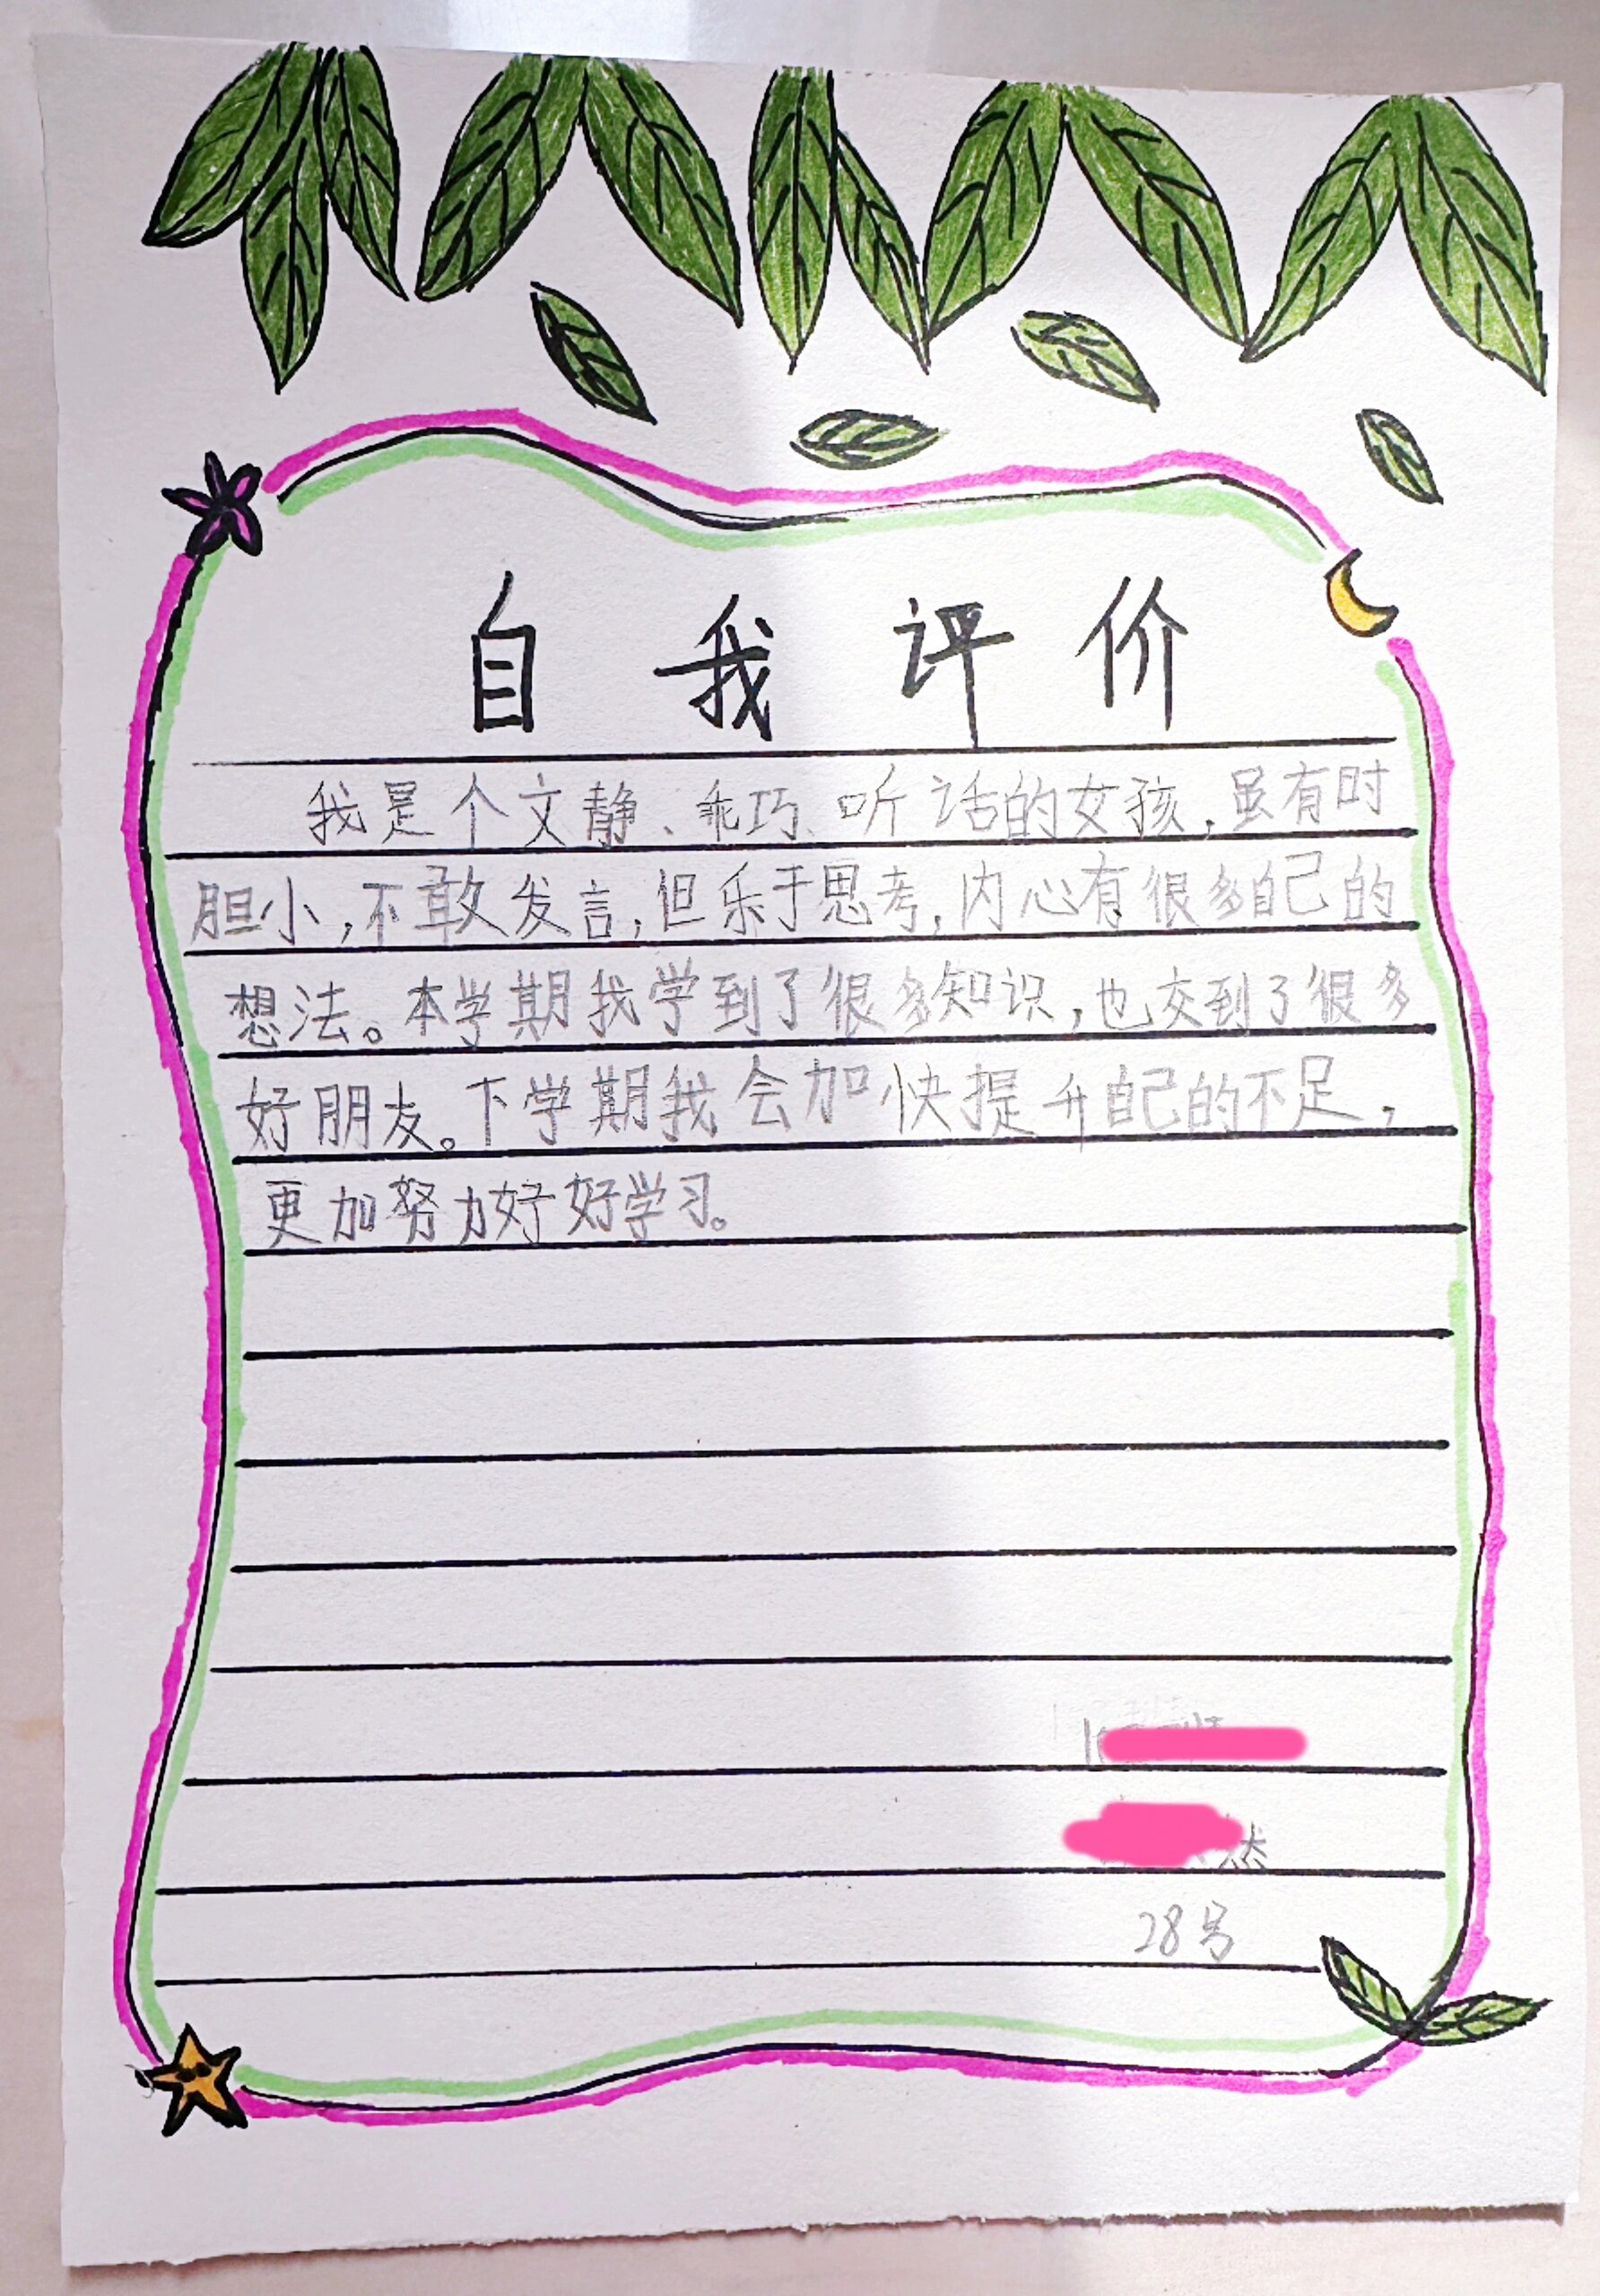 自我评价
我是个文静、乖巧、听话的女孩,虽有时
胆小,不敢发言,但乐于思考,内心有很多自己的
想法。本学期我学到了很多知识,也交到了很多
好朋友。下学期我会加快提升自己的不足,
更加努力好好学习。
然
28号